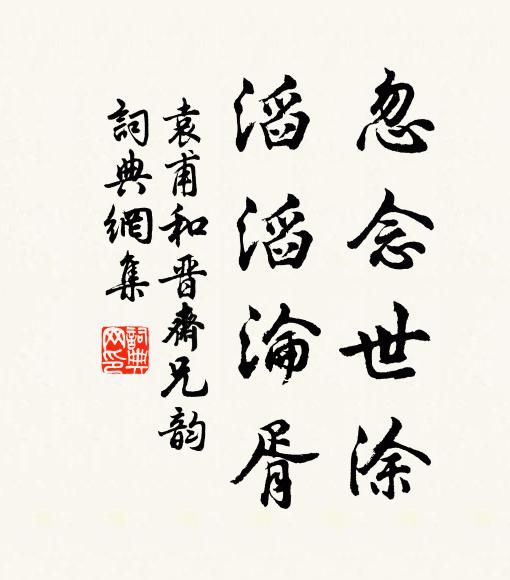 忽念世涂
滔滔淪胥
袁甫和晋齋兄韵
詞典網集
詞典网印